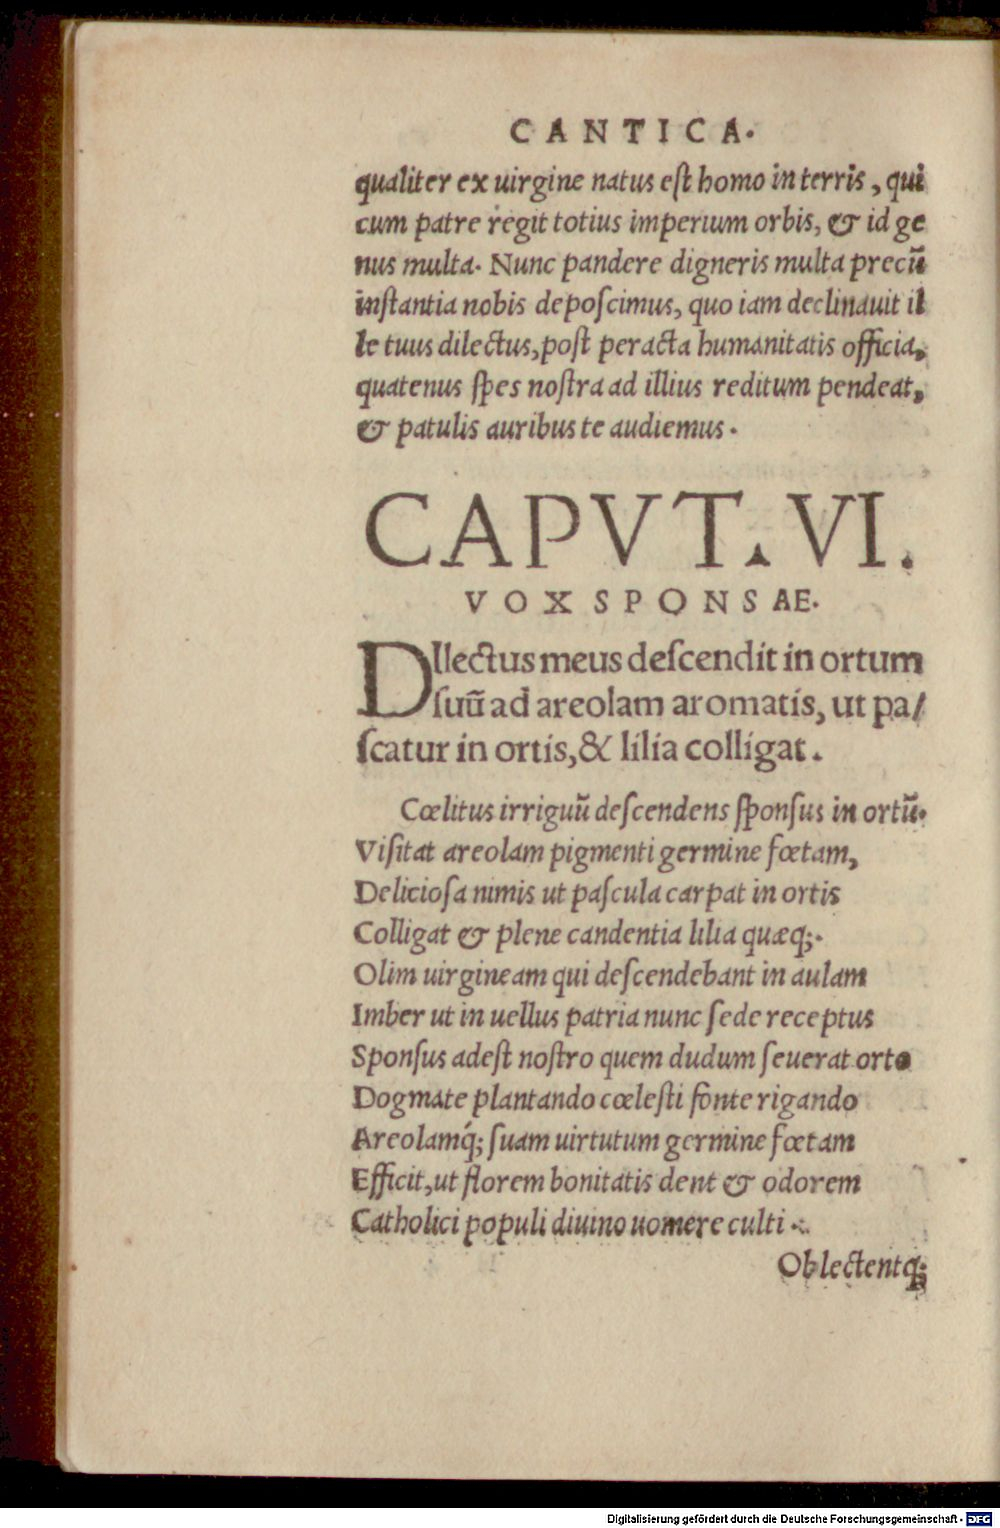 CANTICA.
qualiter ex uirgine natus eſt homo in terris, qui
cum patre regit totius imperium orbis, & id ge
nus multa. Nunc pandere digneris multa precũ
inſtantia nobis depoſcimus, quo iam declinauit il
le tuus dilectus, poſt peracta humanitatis officia,
quatenus ſpes noſtra ad illius reditum pendeat,
& patulis auribus te audiemus.
CAPVT. VI.
VOX SPONSAE.
DIlectus meus deſcendit in ortum
ſuũ ad areolam aromatis, ut pa/
ſcatur in ortis, & lilia colligat.
Cœlitus irriguũ deſcendens ſponſus in ortũ.
Viſitat areolam pigmenti germine fœtam,
Delicioſa nimis ut paſcula carpat in ortis
Colligat & plene candentia lilia quæq;.
Olim uirgineam qui deſcendebant in aulam
Imber ut in uellus patria nunc ſede receptus
Sponſus adeſt noſtro quem dudum ſeuerat orto
Dogmate plantando cœleſti fonte rigando
Areolamq́; ſuam uirtutum germine fœtam
Efficit, ut florem bonitatis dent & odorem
Catholici populi diuino uomere culti.
Oblectentq;
Digitalisierung gefördert durch die Deutsche Forschungsgemeinschaft - DFG